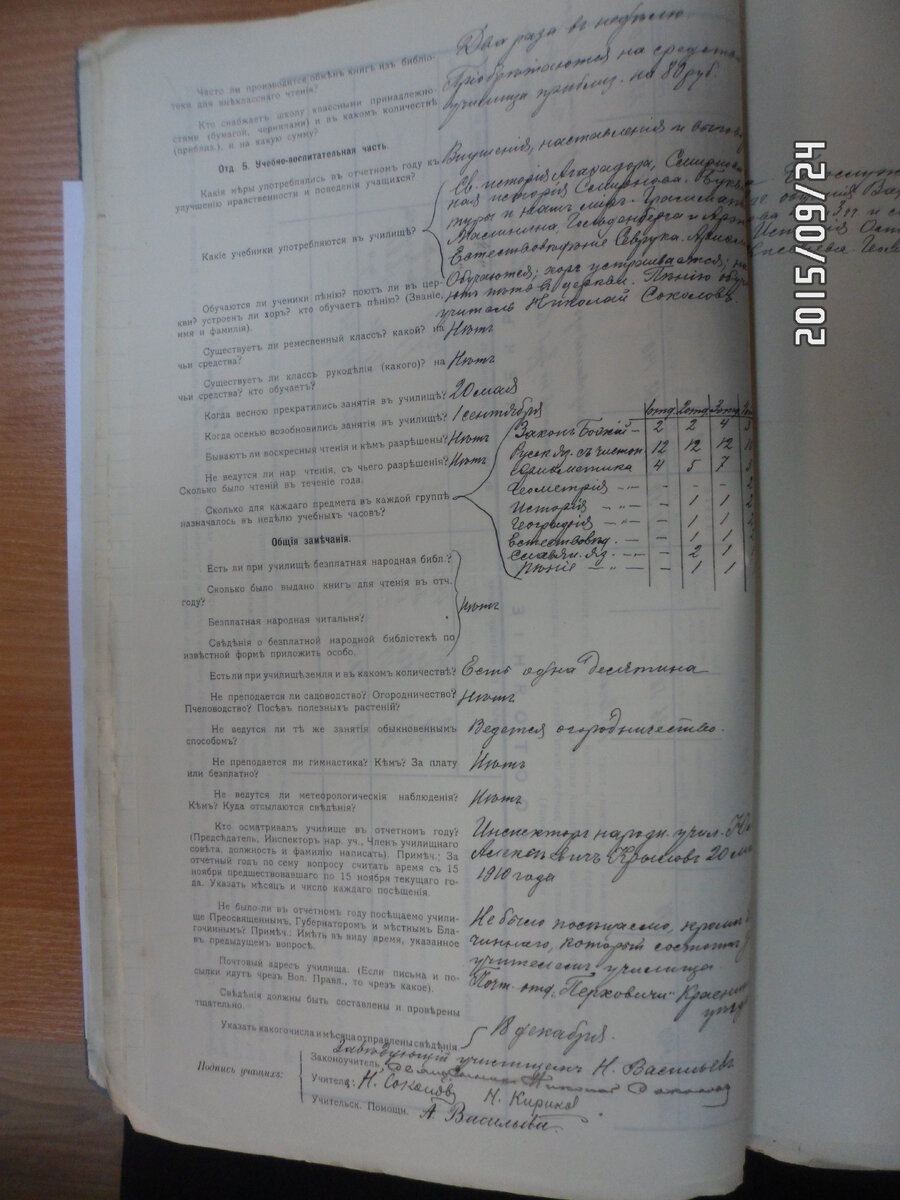 Два раза въ недѣлю
Часто ли производится обмѣнъ книгъ изъ библіо-
теки для внѣкласснаго чтенія?
Кто снабжаетъ школу классными принадлежно-
стями (бумагой, чернилами) и въ какомъ количествѣ
(приблиз.), и на какую сумму?
Пріобрѣтаются на средства
училища приблиз. на 80 руб.
Отд. 5. Учебно-воспитательная часть.
Какія мѣры употреблялись въ отчетномъ году къ
улучшенію нравственности и поведенія учащихся?
Внушенія, наставленія и
Какіе учебники употребляются въ училищѣ?
Св. исторія Агафодора,
ная исторія Смирнова.
туры и нашъ міръ.
Гольденберга и
Естествовѣдѣніе Севрука.
Обучаются ли ученики пѣнію? поютъ ли въ цер-
кви? устроенъ ли хоръ? кто обучаетъ пѣнію? (Званіе,
имя и фамилія).
Обучаются; хоръ устраивается;
ютъ пѣть въ церкви. Пѣнію обуч
учитель Николай Соколовъ
Существуетъ ли ремесленный классъ? какой? на
чьи средства?
Нѣтъ
Существуетъ ли классъ рукодѣлія (какого)? на
чьи средства? кто обучаетъ?
Нѣтъ
Когда весною прекратились занятія въ училищѣ? 20 мая
Когда осенью возобновились занятія въ училищѣ? 1 сентября
Бываютъ ли воскресныя чтенія и кѣмъ разрѣшены? Нѣтъ
Не ведутся ли нар. чтенія, съ чьего разрѣшенія? Нѣтъ
Сколько было чтеній въ теченіе года.
Сколько для каждаго предмета въ каждой группѣ
назначалось въ недѣлю учебныхъ часовъ?
1отд 2отд 3отд
Законъ Божій – 2 2 4 3
Русск. яз. съ чистоп. 12 12 12
Ариѳметика 4 5 7
Геометрія – – – – 2
Исторія – 1 1 2
Географія – 1 1 2
Естествовѣд. – 1 1
Славян. яз. – 2 1
Пѣніе – 1 1
Общія замѣчанія.
Есть ли при училищѣ безплатная народная библ.?
Сколько было выдано книгъ для чтенія въ отч.
году?
Безплатная народная читальня?
Свѣдѣнія о безплатной народной библіотекѣ по
извѣстной формѣ приложить особо.
Нѣтъ
Есть ли при училищѣ земля и въ какомъ количествѣ? Есть одна десятина
Не преподается ли садоводство? Огородничество?
Пчеловодство? Посѣвъ полезныхъ растеній?
Нѣтъ
Не ведутся ли тѣ же занятія обыкновеннымъ
способомъ?
Ведется огородничество.
Не преподается ли гимнастика? Кѣмъ? За плату
или безплатно?
Нѣтъ
Не ведутся ли метеорологическія наблюденія?
Кѣмъ? Куда отсылаются свѣдѣнія?
Нѣтъ
Кто осматривалъ училище въ отчетномъ году?
(Предсѣдатель, Инспекторъ нар. уч., Членъ училищнаго
совѣта, должность и фамилію написать). Примѣч.: За
отчетный годъ по сему вопросу считать время съ 15
ноября предшествовавшаго по 15 ноября текущаго го-
да. Указать мѣсяцъ и число каждаго посѣщенія.
Инспекторъ народн. учил.
Алексѣевичъ Крыловъ 20
1910 года
Не было-ли въ отчетномъ году посѣщаемо учили-
ще Преосвященнымъ, Губернаторомъ и мѣстнымъ Бла-
гочиннымъ? Примѣч.: Имѣть въ виду время, указанное
въ предыдущемъ вопросѣ.
Не было посѣщаемо, кромѣ
чиннаго, который состоитъ
учителемъ училища
Почтовый адресъ училища. (Если письма и по-
сылки идутъ чрезъ Вол. Правл., то чрезъ какое).
Почт. отд. Перховичи
Свѣдѣнія должны быть составлены и провѣрены
тщательно.
Указать какого числа и мѣсяца отправлены свѣдѣнія 18 декабря.
Завѣдующій училищемъ Н. Васильевъ
Подпись учащихъ:
Законоучитель, Священникъ Николай Соколовъ
Учителя: Н. Соколовъ
Н. Кириков
Учительск. Помощн. А. Васильева.
2015/09/24